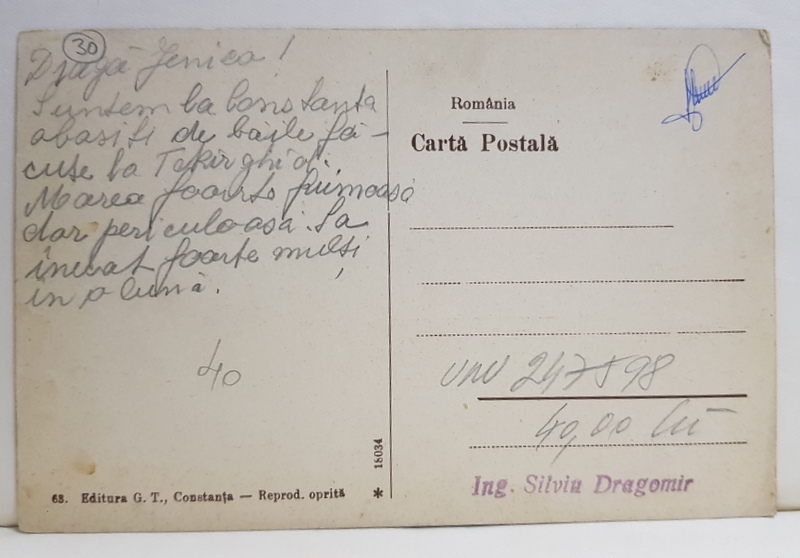 30
Dragă Jenica!
Suntem la Constanta
obosiți de băile fă-
cute la Tekirghiol.
Marea foarte frumoasă
dar periculoasă. Sa
înecat foarte mulți
in o lună.
40
România
Cartă Postală
247598
40,00 lei
Ing. Silviu Dragomir
18034
68. Editura G. T., Constanța — Reprod. oprită *